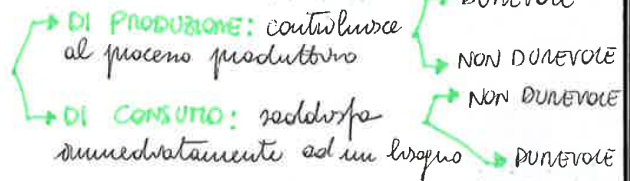 DUREVOLE
DI PRODUZIONE: contribuisce
al processo produttivo
NON DUREVOLE
NON DUREVOLE
DI CONSUMO: soddisfa
immediatamente ad un bisogno
DUREVOLE